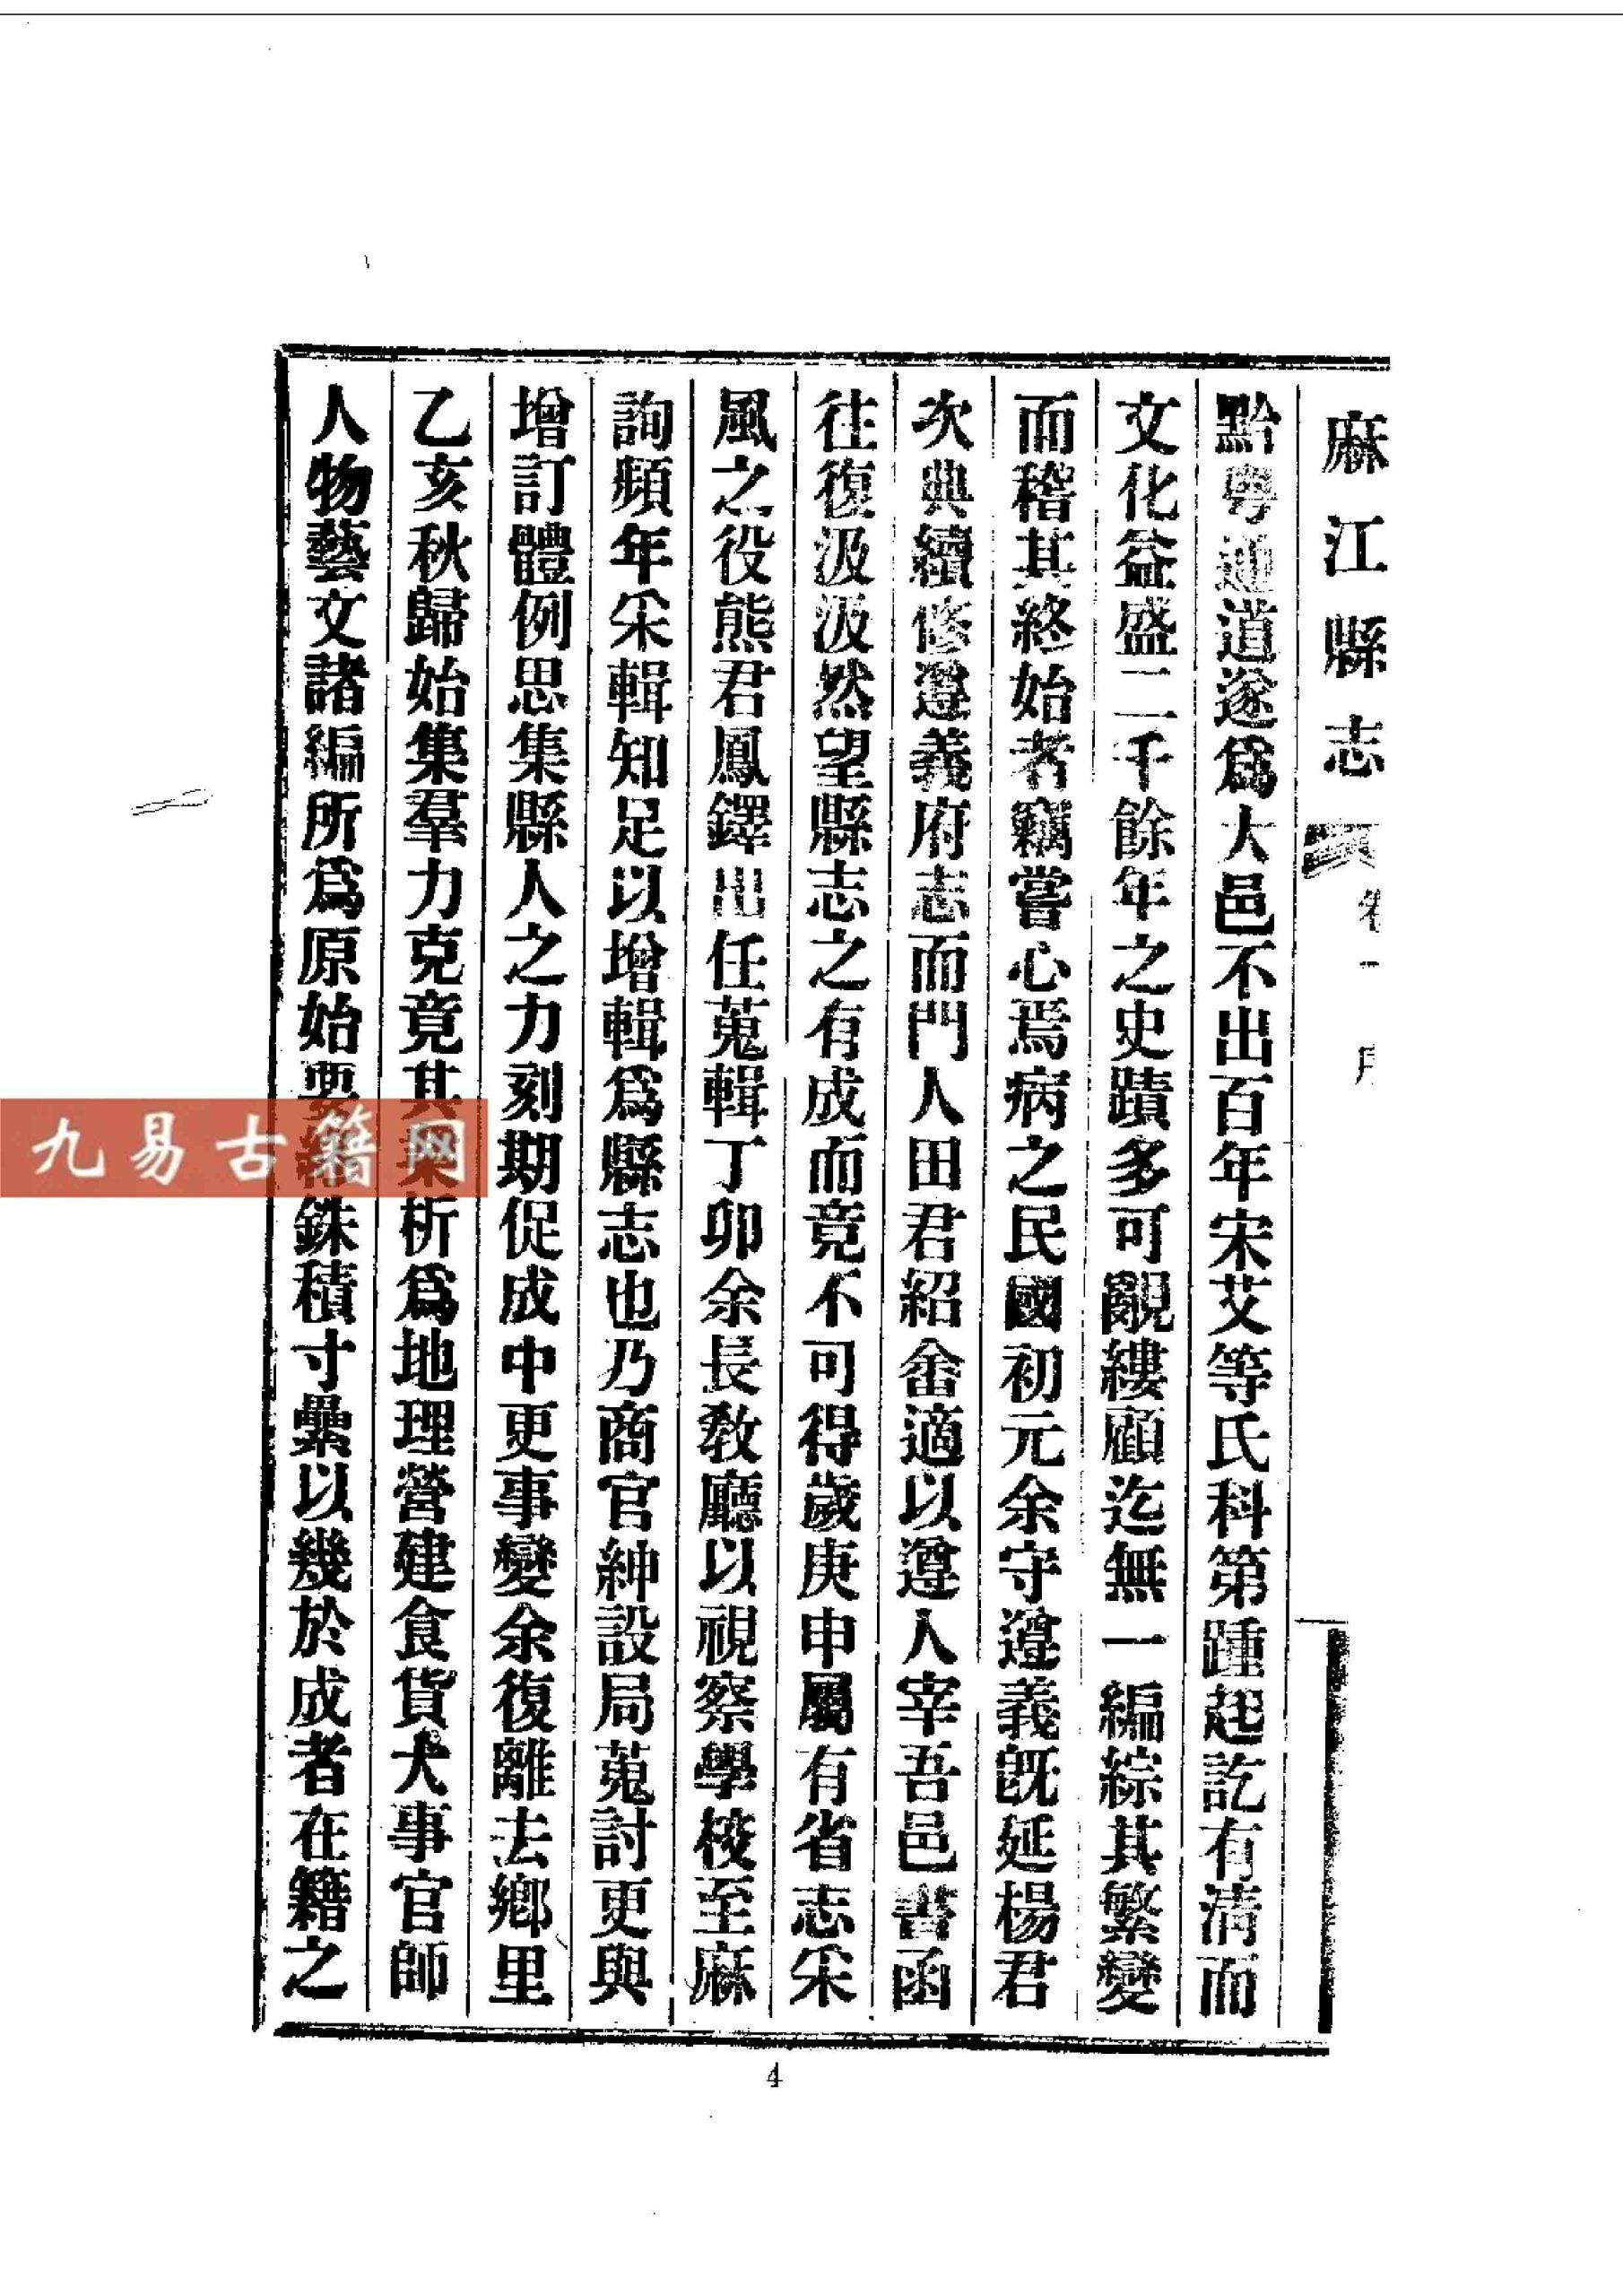 麻江縣志 卷一 序
黔粵通道遂爲大邑不出百年宋艾等氏科第踵起訖有清而
文化益盛二千餘年之史蹟多可覼縷顧迄無一編綜其繁變
而稽其終始者竊嘗心焉病之民國初元余守遵義旣延楊君
次典續修遵義府志而門人田君紹畬適以遵人宰吾邑書函
往復汲汲然望縣志之有成而竟不可得歲庚申屬有省志采
風之役熊君鳳鐸出任蒐輯丁卯余長敎廳以視察學校至麻
詢頻年采輯知足以增輯爲縣志也乃商官紳設局蒐討更與
增訂體例思集縣人之力刻期促成中更事變余復離去鄉里
乙亥秋歸始集羣力克竟其業析爲地理營建食貨大事官師
人物藝文諸編所爲原始要銖積寸纍以幾於成者在籍之
九易古籍网
4